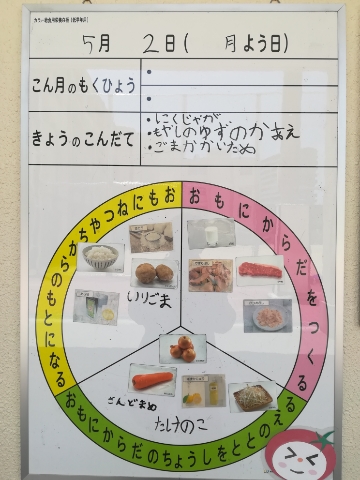 5月 2日( 月よう日)
こん月のもくひょう
・
・
きょうのこんだて
・にくじゃが
・もやしのゆずのかあえ
・ごまかかいため
おもにねつやちからのもとになる
おもにからだをつくる
いりごま
さんどまめ
たけのこ
おもにからだのちょうしをととのえる